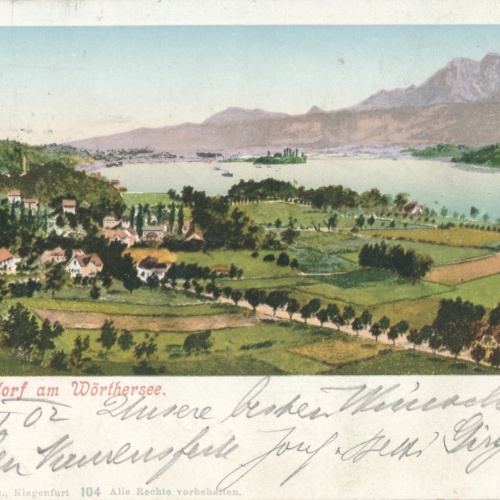 dorf am Wörthersee.
II 02 Unsere besten Wünsche
en Namensfeste Josf
., Klagenfurt 104 Alle Rechte vorbehalten.